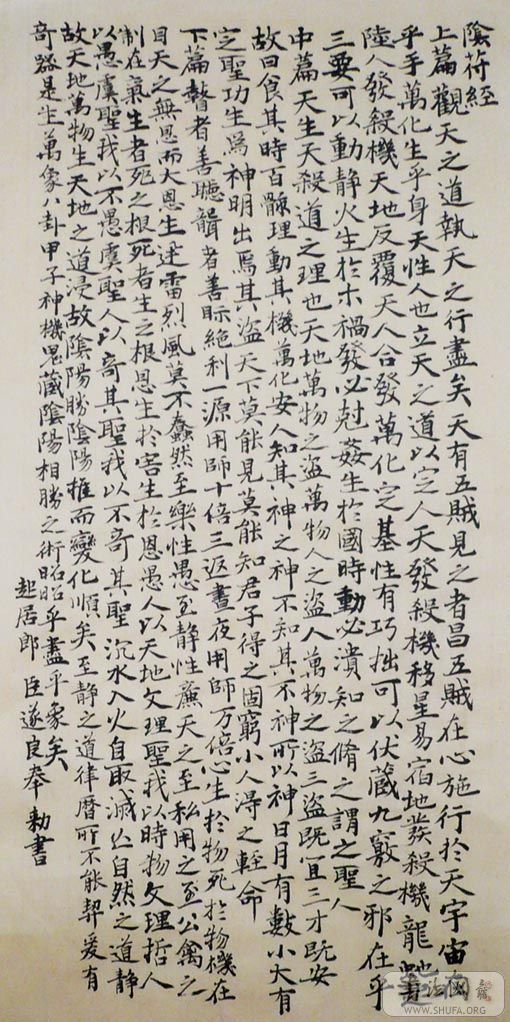 陰符經
上篇觀天之道執天之行盡矣天有五賊見之者昌五賊在心施行於天宇宙在
乎手萬化生乎身天性人也立天之道以定人天發殺機移星易宿地發殺機龍蛇起
陸人發殺機天地反覆天人合發萬化定基性有巧拙可以伏藏九竅之邪在乎
三要可以動靜火生於木禍發必尅姦生於國時動必潰知之脩之謂之聖人
中篇天生天殺道之理也天地萬物之盜萬物人之盜人萬物之盜三盜既宜三才既安
故曰食其時百骸理動其機萬化安人知其神之神不知其不神所以神日月有數小大有
定聖功生焉神明出焉其盜天下莫能見莫能知君子得之固窮小人得之輕命
下篇瞽者善聽聾者善眎絕利一源用師十倍三返晝夜用師万倍心生於物死於物機在
目天之無恩而大恩生迅雷烈風莫不蠢然至樂性愚至靜性廉天之至私用之至公禽之
制在氣生者死之根死者生之根恩生於害生於恩愚人以天地文理聖我以時物文理哲人
以愚虞聖我以不愚虞聖人以奇其聖我以不奇其聖沉水入火自取滅亡自然之道靜
故天地萬物生天地之道浸故陰陽勝陰陽推而變化順矣至靜之道律曆所不能契爰有
奇器是生萬象八卦甲子神機鬼藏陰陽相勝之術昭昭乎盡乎象矣
起居郎臣遂良奉 勅書
WWW.SHUFA.ORG